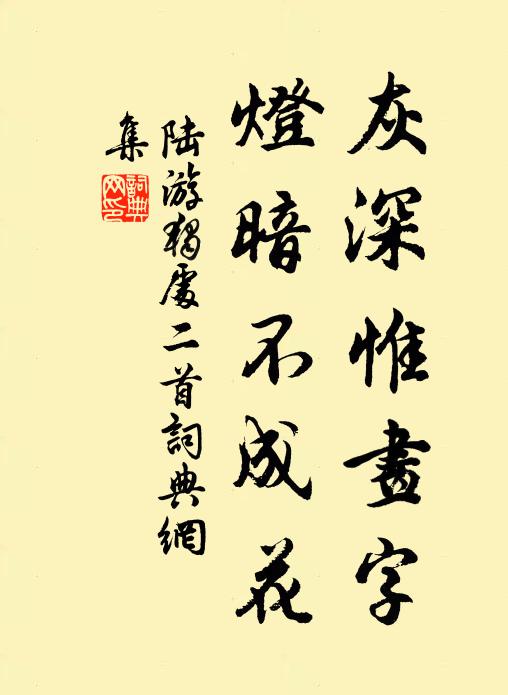 灰深惟畫字
燈暗不成花
陸游獨處二首詞典網
集
詞典
网印